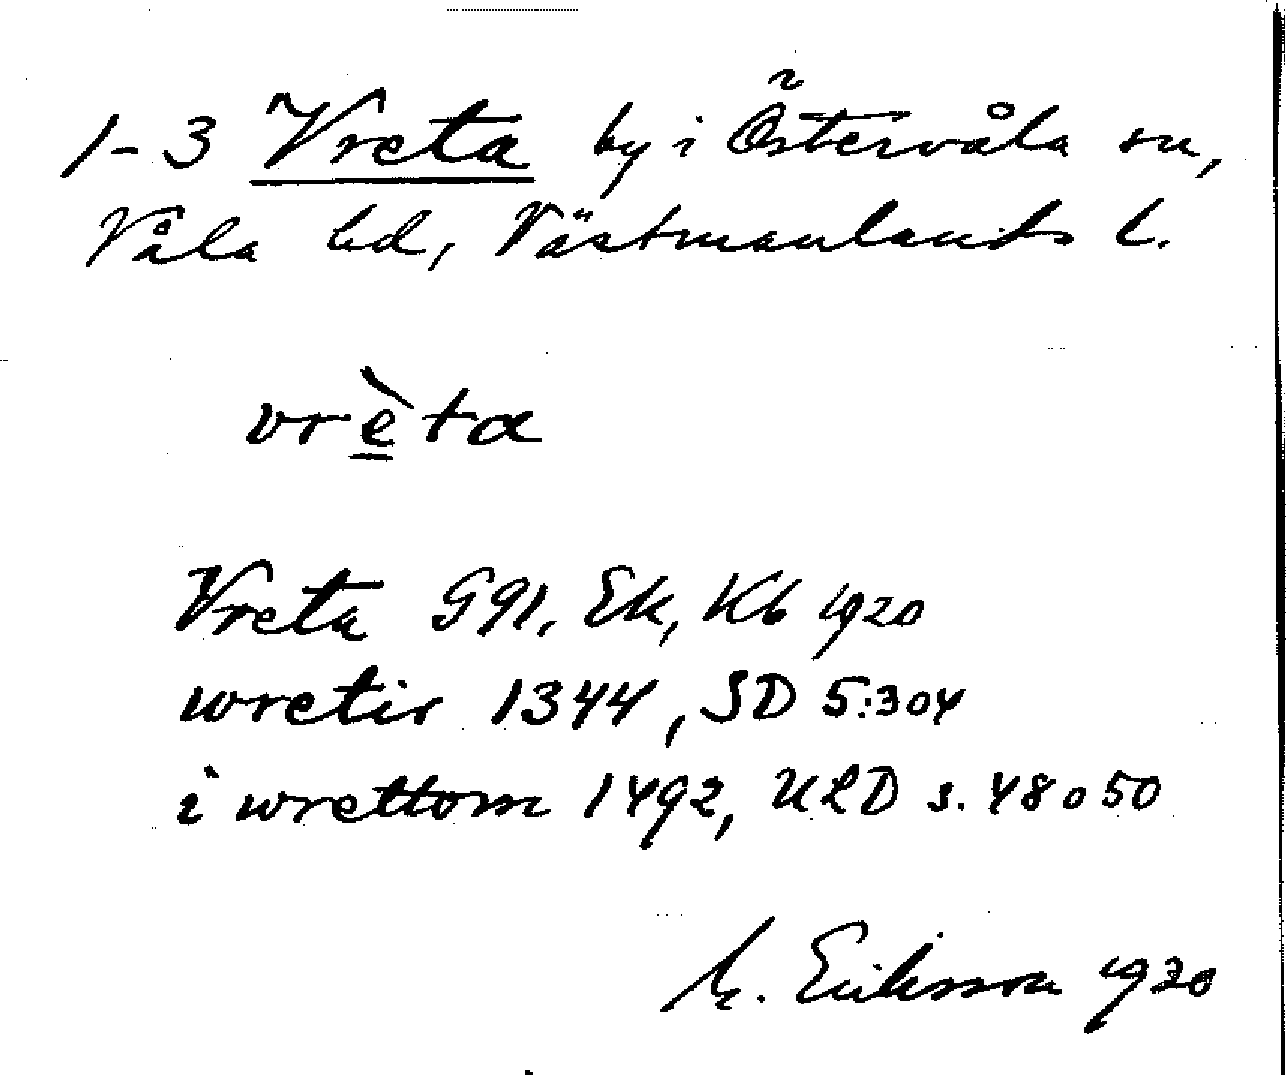 1-3 Vreta by i Östervåla sn,
Våla hd, Västmanlands l.
vrèta
Vreta G91, Ek, Kb 1920
wretir 1344, SD 5:304
i wrettom 1492, ULD s. 48 o 50
M. Eriksson 1920